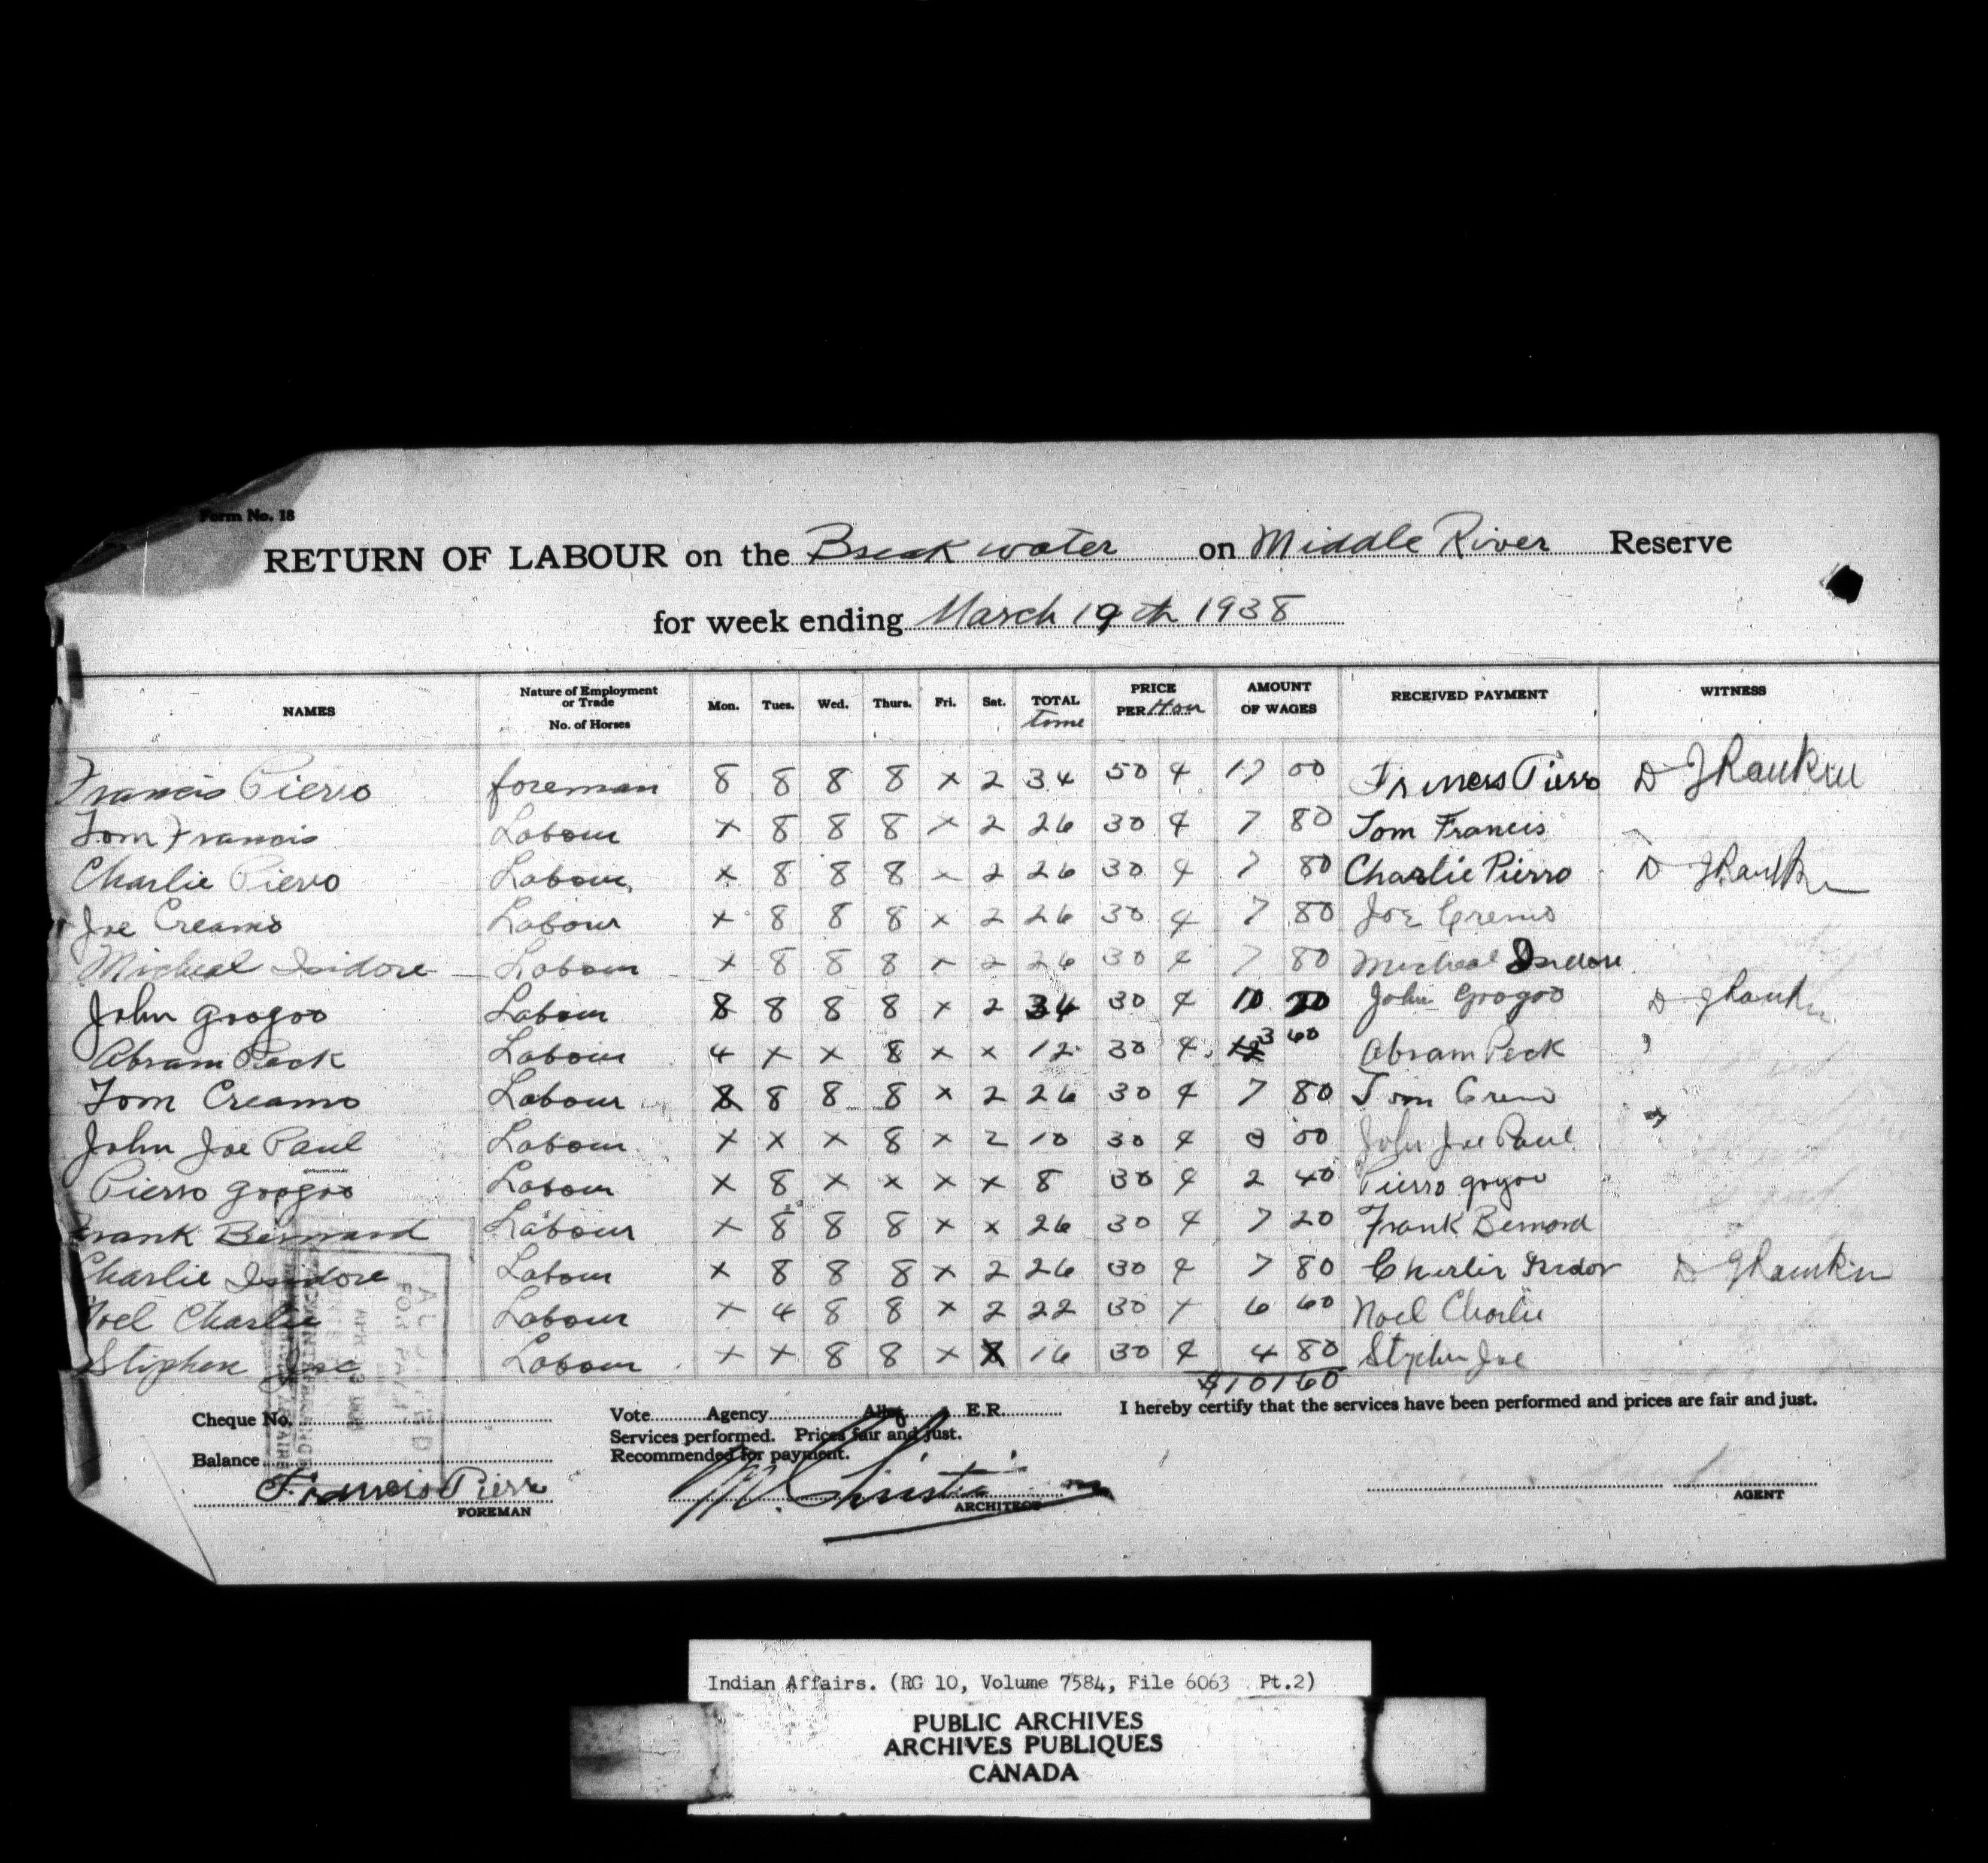 Form No. 18
RETURN OF LABOUR on the Breakwater on Middle River Reserve
for week ending March 19th 1938
NAMES Nature of Employment or Trade No. of Horses Mon. Tues. Wed. Thurs. Fri. Sat. TOTAL time PRICE PER Hour AMOUNT OF WAGES RECEIVED PAYMENT WITNESS
Francis Pierro foreman 8 8 8 8 x 2 34 50 ¢ 17 00 Francis Pierro D J Rankin
Tom Francis Labour x 8 8 8 x 2 26 30 ¢ 7 80 Tom Francis
Charlie Pierro Labour x 8 8 8 x 2 26 30 ¢ 7 80 Charlie Pierro D J Rankin
Joe Creamo Labour x 8 8 8 x 2 26 30 ¢ 7 80 Joe Cremo
Micheal Isidore Labour x 8 8 8 x 2 26 30 ¢ 7 80 Micheal Isidore
John Googoo Labour 8 8 8 8 x 2 34 30 ¢ 10 20 John Googoo D J Rankin
Abram Peck Labour 4 x x 8 x x 12 30 ¢ 3 60 Abram Peck
Tom Creamo Labour x 8 8 8 x 2 26 30 ¢ 7 80 Tom Cremo
John Joe Paul Labour x x x 8 x 2 10 30 ¢ 3 00 John Joe Paul
Pierro Googoo Labour x 8 x x x x 8 30 ¢ 2 40 Pierro Gogoo
Frank Bernard Labour x 8 8 8 x x 26 30 ¢ 7 20 Frank Bernard
Charlie Isidore Labour x 8 8 8 x 2 26 30 ¢ 7 80 Charlie Isidor D J Rankin
Noel Charlie Labour x 4 8 8 x 2 22 30 ¢ 6 60 Noel Charlie
Stiphen Joe Labour x x 8 8 x x 16 30 ¢ 4 80 Stephen Joe
$101 60
Cheque No. Vote Agency E.R. I hereby certify that the services have been performed and prices are fair and just.
Services performed. Prices fair and just.
Balance Recommended for payment.
Francis Pierro
FOREMAN ARCHITECT AGENT
Indian Affairs. (RG 10, Volume 7584, File 6063 Pt.2)
PUBLIC ARCHIVES
ARCHIVES PUBLIQUES
CANADA